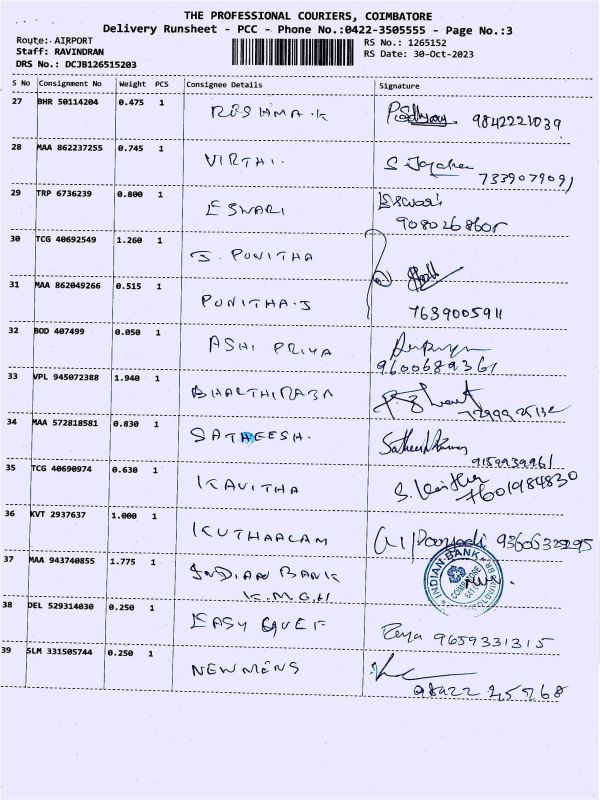 THE PROFESSIONAL COURIERS, COIMBATORE
Delivery Runsheet - PCC - Phone No.:0422-3505555 - Page No.:3
Route: AIRPORT RS No.: 1265152
Staff: RAVINDRAN RS Date: 30-Oct-2023
DRS No.: DCJB126515203
S No Consignment No Weight PCS Consignee Details Signature
27 BHR 50114204 0.475 1 RESHMA.K 9842221039
28 MAA 862237255 0.745 1 VIRTHI. 7339079091
29 TRP 6736239 0.800 1 ESWARI Eswari
9080268605
30 TCG 40692549 1.260 1 J. PUNITHA
31 MAA 862049266 0.515 1 PUNITHA.J 7639005911
32 BOD 407499 0.050 1 ASHI PRIYA
9600689361
33 VPL 945072388 1.940 1 BHARTHIRAJA
34 MAA 572818581 0.830 1 SATHEESH.
9159939961
35 TCG 40690974 0.630 1 KAVITHA 7601984830
36 KVT 2937637 1.000 1 KUTHAALAM 9360632295
37 MAA 943740855 1.775 1 INDIAN BANK INDIAN BANK
K.M.C.H COIMBATORE
38 DEL 529314030 0.250 1 EASY 9659331315
39 SLM 331505744 0.250 1 NEWMENS